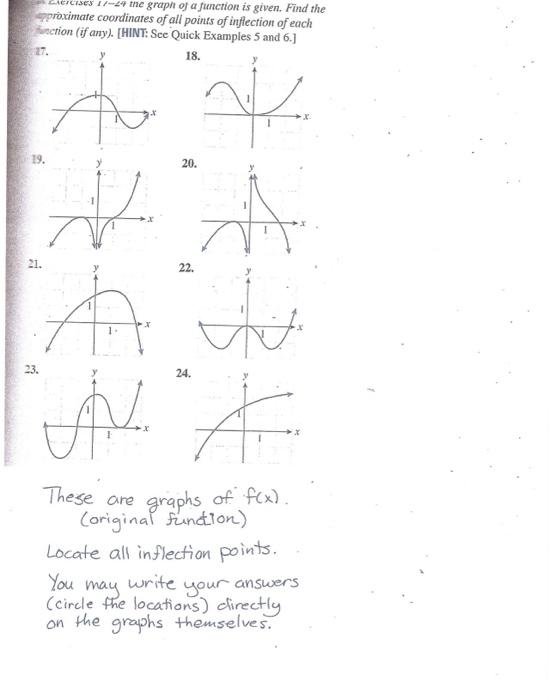 Exercises 17–24 the graph of a function is given. Find the
approximate coordinates of all points of inflection of each
function (if any). [HINT: See Quick Examples 5 and 6.]
17. 18.
y y
1 x 1 1 x
19. 20.
y y
1 1 x 1 1 x
21. 22.
y y
1 1 x 1 1 x
23. 24.
y y
1 1 x 1 1 x
These are graphs of f(x).
(original function)
Locate all inflection points.
You may write your answers
(circle the locations) directly
on the graphs themselves.